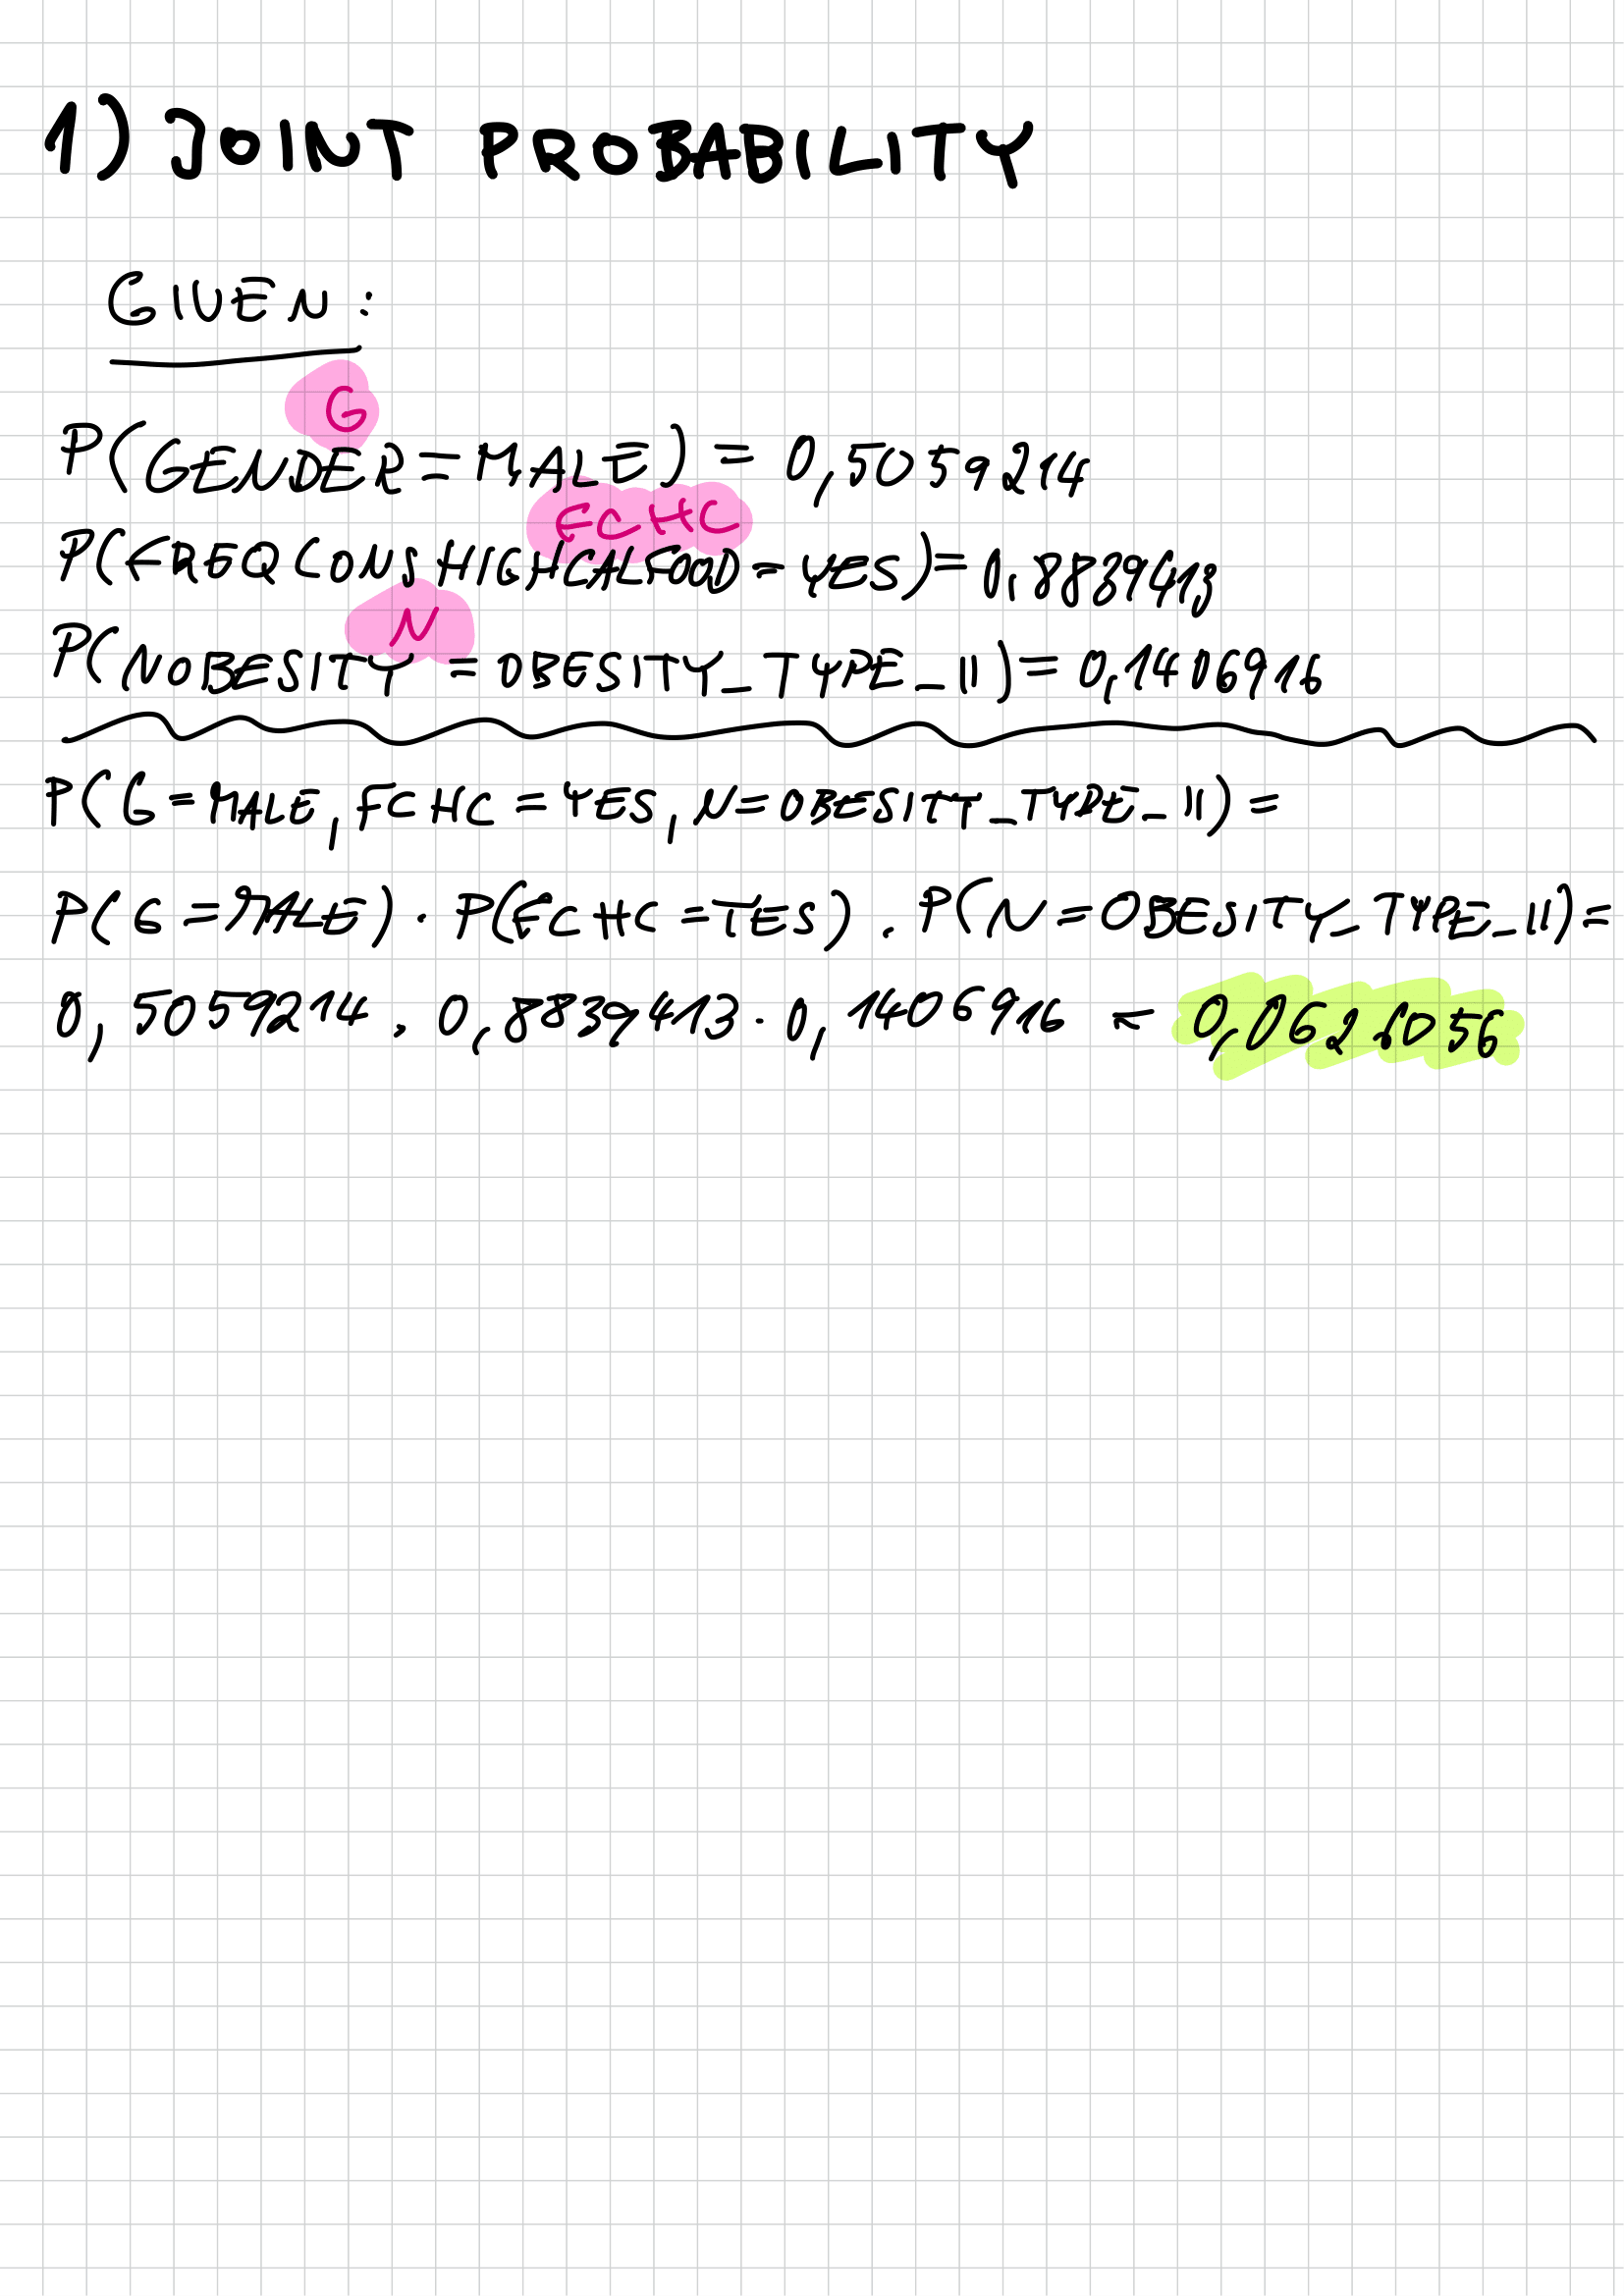 1) JOINT PROBABILITY
GIVEN:
G
P(GENDER=MALE) = 0,5059214
FCHC
P(FREQCONSHIGHCALFOOD=YES)=0,8839413
N
P(NOBESITY = OBESITY_TYPE_II)=0,1406916
P(G=MALE, FCHC=YES, N=OBESITY_TYPE_II) =
P(G=MALE) · P(FCHC=YES) · P(N=OBESITY_TYPE_II)=
0,5059214 · 0,8839413 · 0,1406916 = 0,0626056